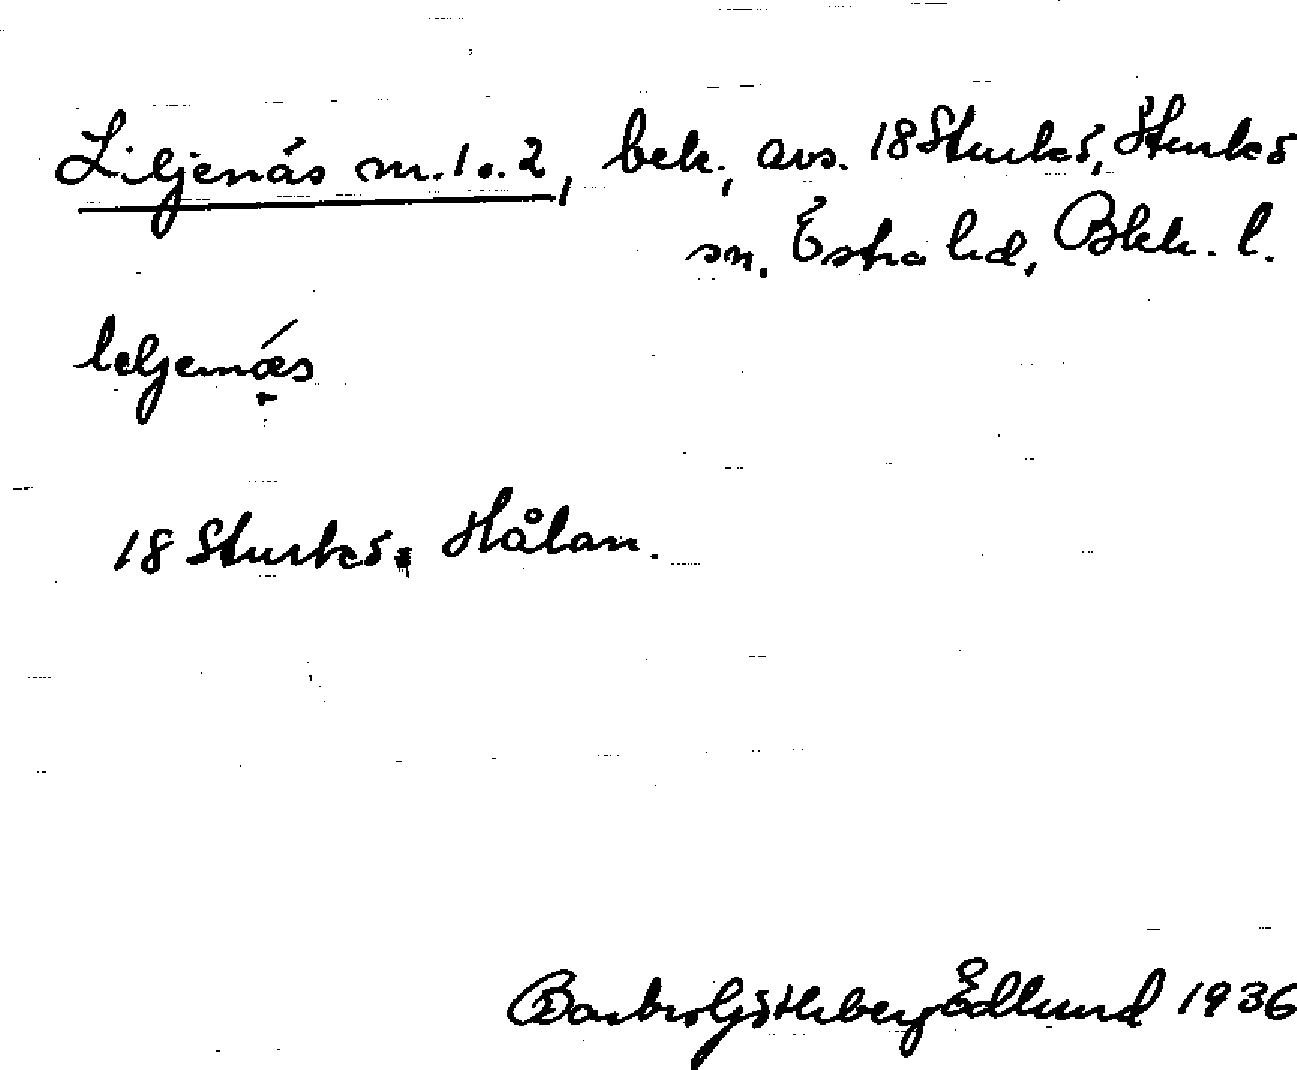 Liljenäs m. 1 o. 2, bek., avs. 18 Sturkö, Sturkö
sn. Östra hd, Blek. l.
leljenæs
18 Sturkö. Hålan.
Barbro Götheberg Edlund 1936